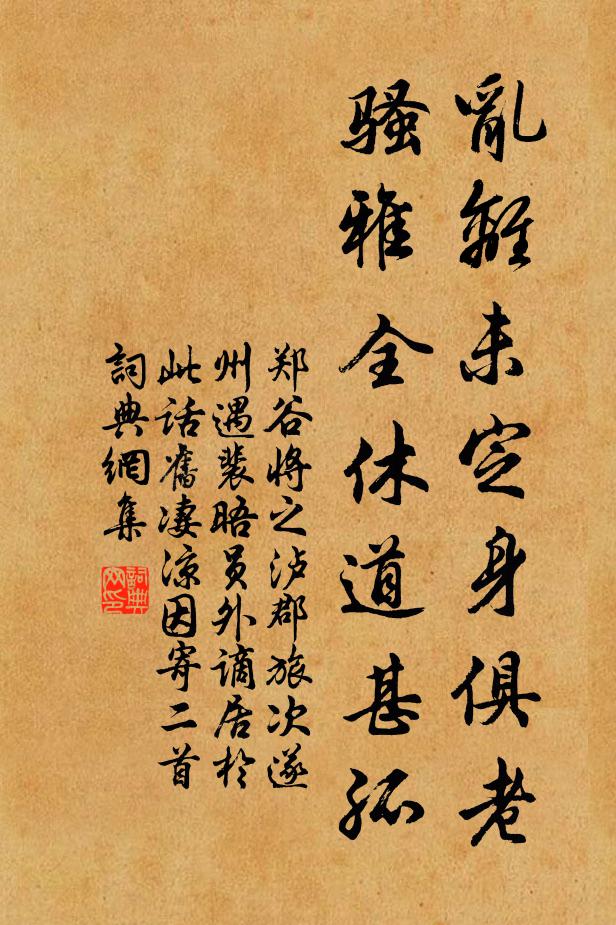 亂離未定身俱老
騷雅全休道甚孤
郑谷將之泸郡旅次遂
州遇裴晤員外谪居於
此话舊凄凉因寄二首
詞典網集
詞典
网印